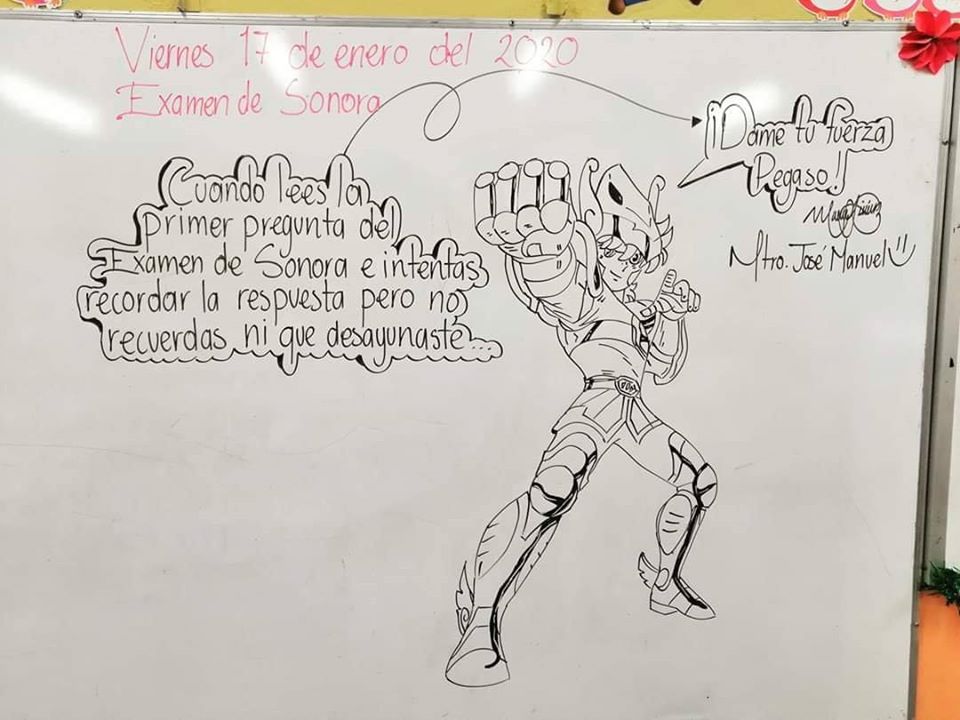 Viernes 17 de enero del 2020
Examen de Sonora
Cuando lees la
primer pregunta del
Examen de Sonora e intentas
recordar la respuesta pero no
recuerdas ni que desayunaste...
¡Dame tu fuerza
Pegaso!!
Mtro. José Manuel